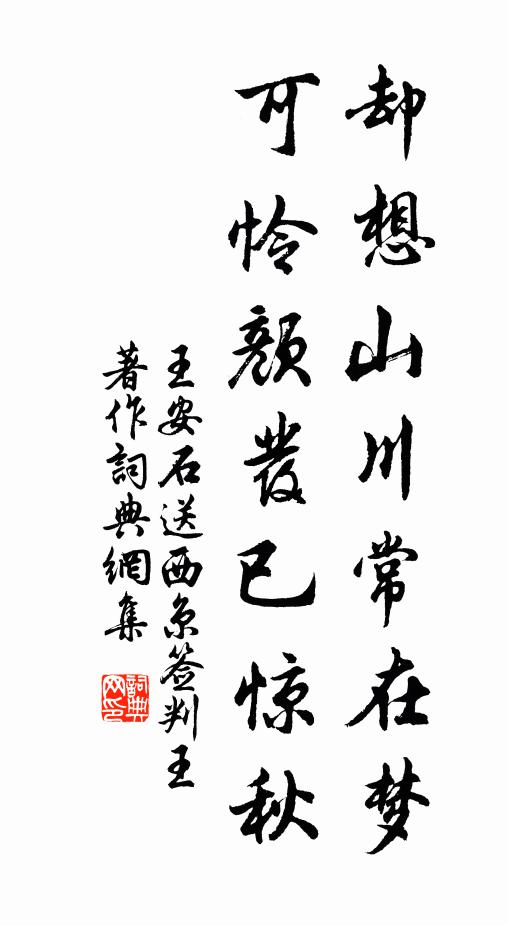 却想山川常在梦
可怜颜发已惊秋
王安石送西京签判王
著作詞典網集
詞典
网印